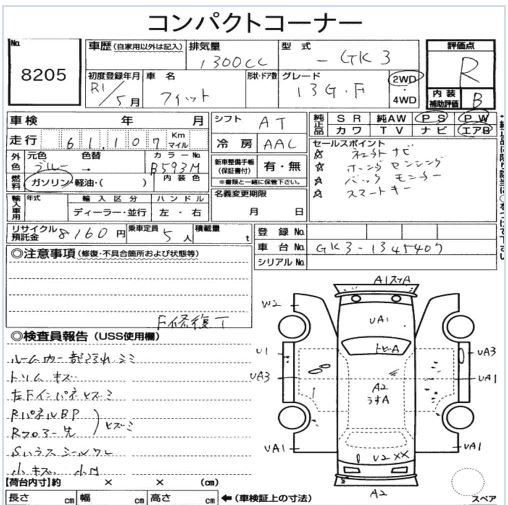 コンパクトコーナー
No.
8205
車歴 (自家用以外は記入)
排気量
1300CC
型式
-GK3
評価点
R
初度登録年月
R1/5月
車名
フィット
形状・ドア数
グレード
13G・F
2WD
・4WD
内装補助評価
B
車検 年 月
シフト AT
純正品
SR 純AW PS PW
カワ TV ナビ エアB
走行 61,107 Km マイル
冷房 AAC
セールスポイント
☆ ホンダ センシング
☆ バック モニター
☆ スマートキー
外色
元色 ブルー
色替 →
カラーNo. B593M
燃料
ガソリン・軽油・( )
内装色
新車整備手帳 (保証書付) 有・無
※書類と一緒に保管下さい。
名義変更期限
月 日
輸入車用
年式
輸入区分
ディーラー・並行
ハンドル
左・右
リサイクル預託金 8160円
乗車定員 5人
積載量 t
登録No.
車台No. GK3-1345407
シリアルNo.
◎注意事項 (修復・不具合箇所および状態等)
F修復丁
◎検査員報告 (USS使用欄)
トリム キズ
左Fインパネ ヒズミ
RパネルBP
Rフロアー先
ヒズミ
小キズ 小凹
A1スリA
W2
UA1
トビA
U1
UA3
UA3
A2
UA1
UA1
UA1
U2 XX
A2
スペア
【荷台内寸】約 × × (cm)
長さ cm 幅 cm 高さ cm ←(車検証上の寸法)